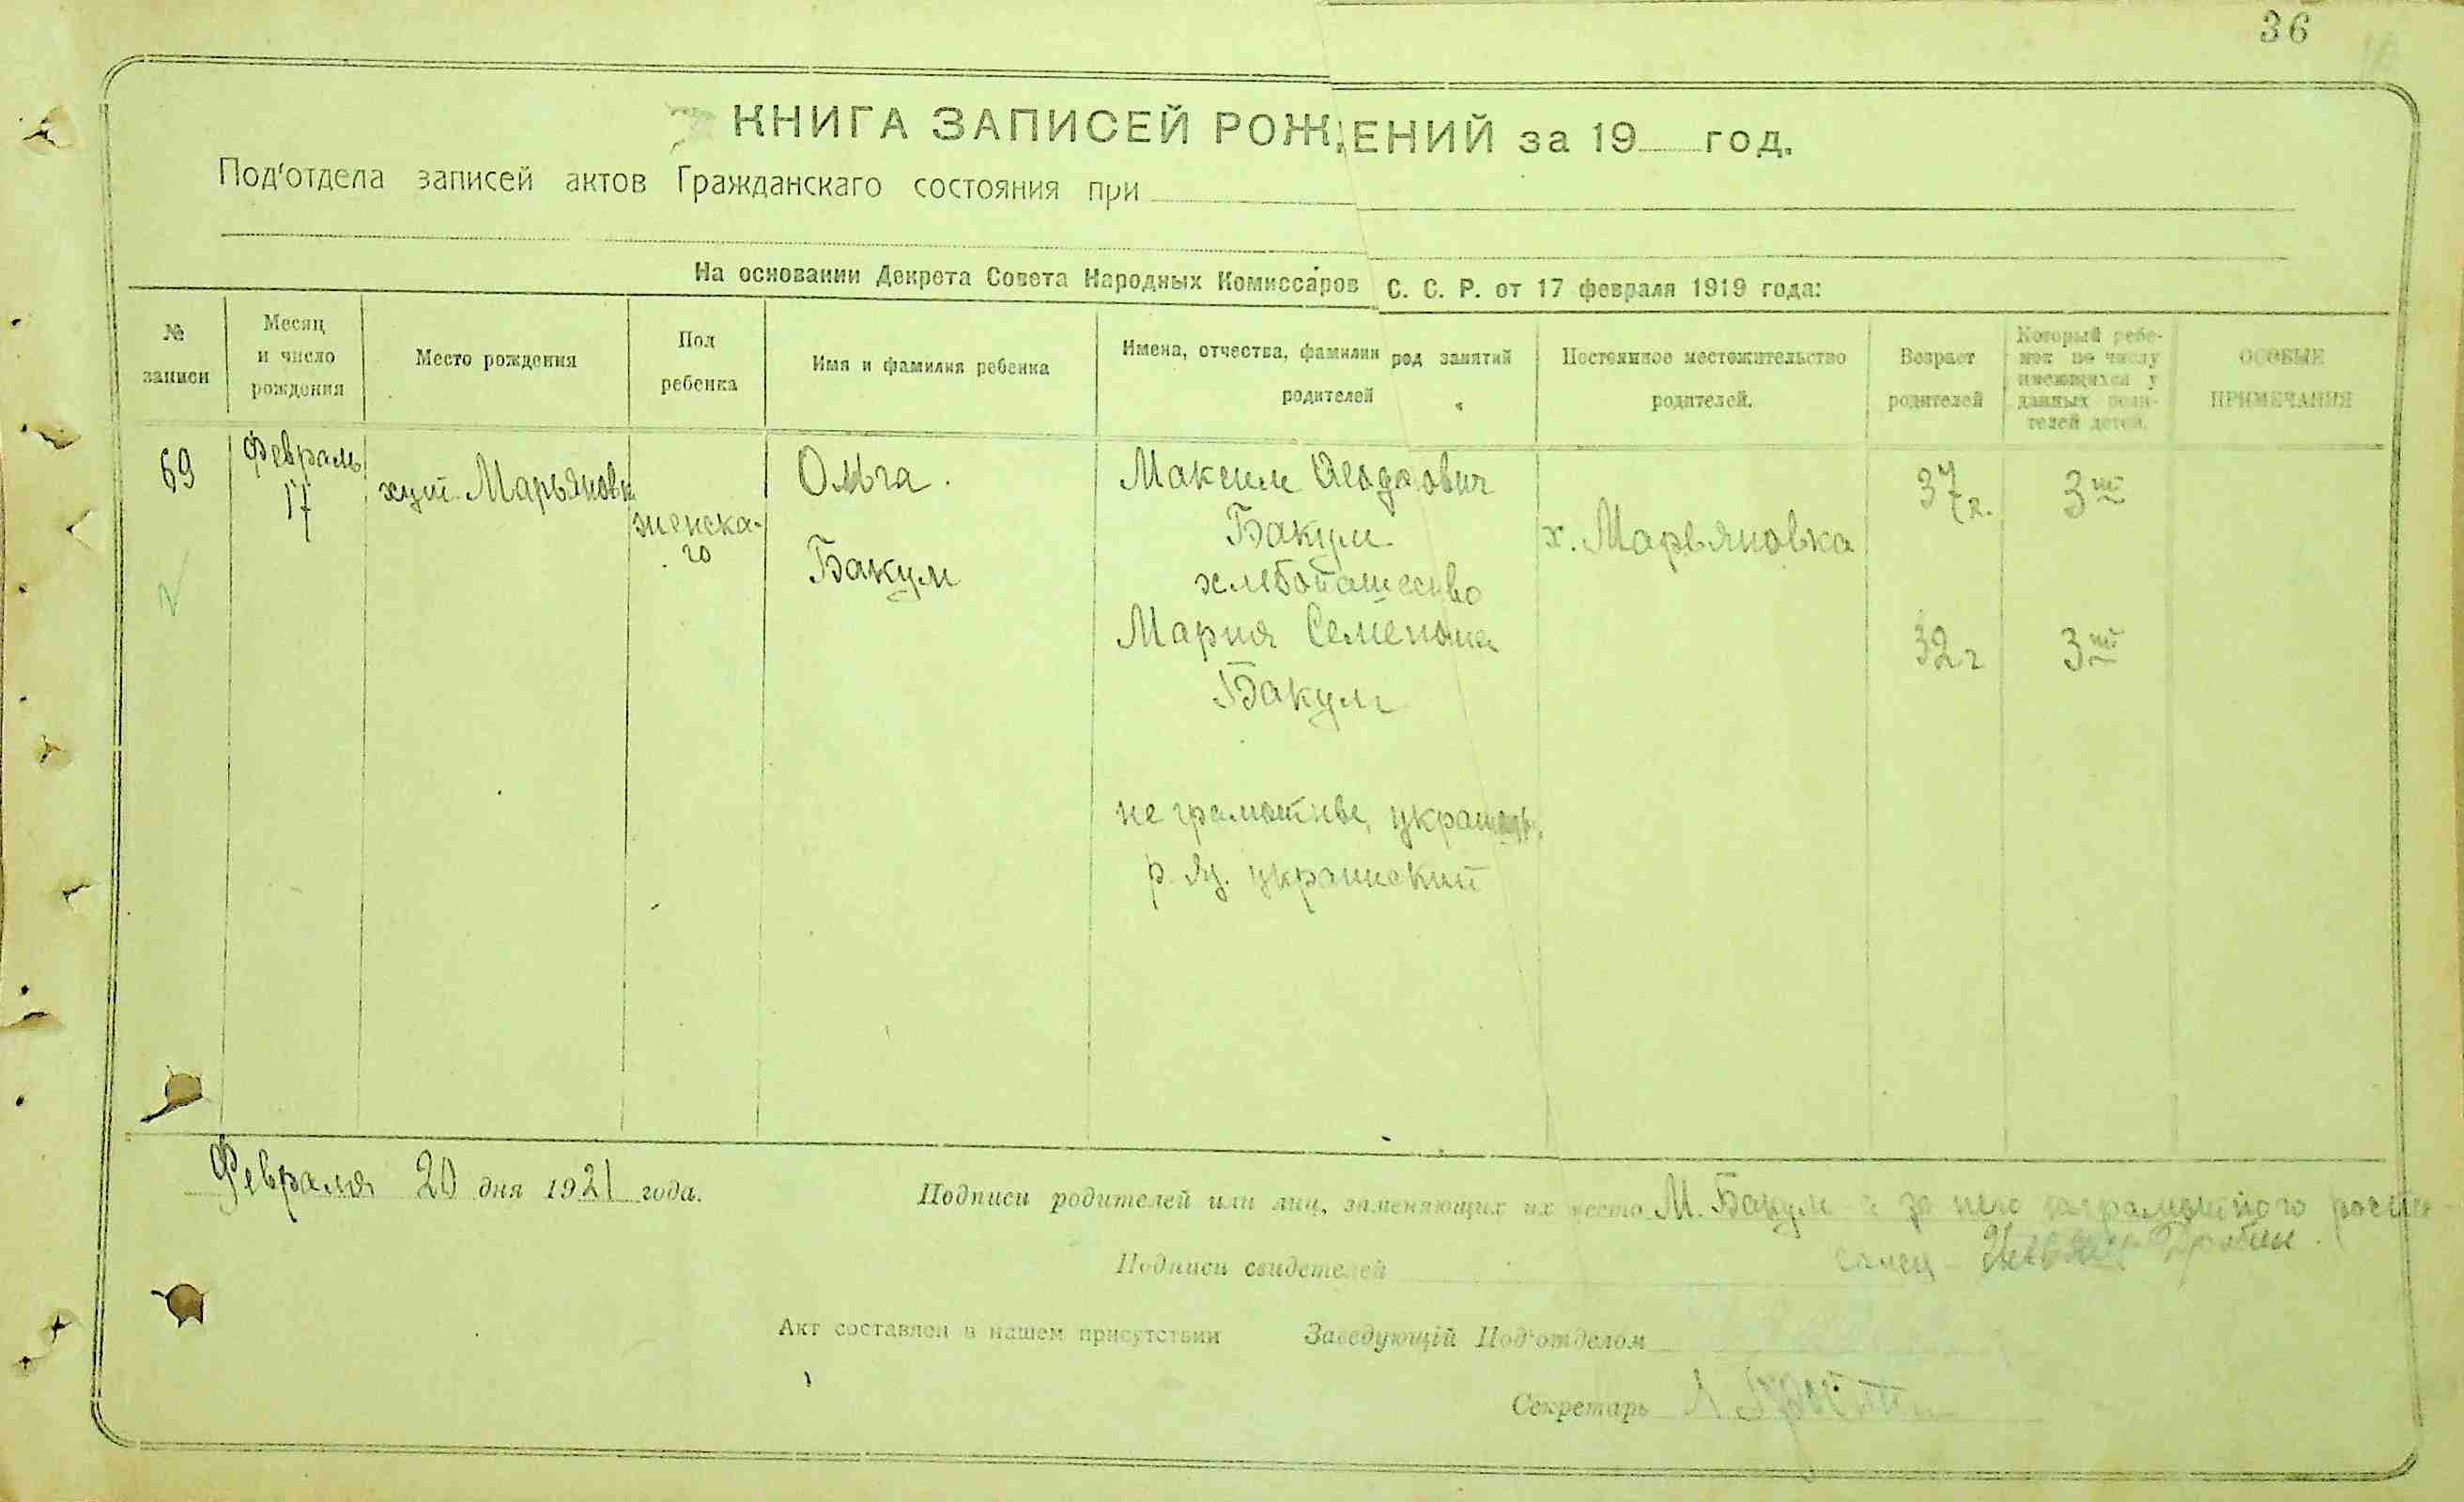 36
КНИГА ЗАПИСЕЙ РОЖ ЕНИЙ за 19 год.
Под'отдела записей актов Гражданскаго состояния при
На основании Декрета Совета Народных Комиссаров С. С. Р. от 17 февраля 1919 года:
№ записи
Месяц и число рождения
Место рождения
Пол ребенка
Имя и фамилия ребенка
Имена, отчества, фамилии род занятий родителей
Постоянное местожительство родителей.
Возраст родителей
Который ребе-
нок по числу
имеющихся у
данных роди-
телей детей.
ОСОБЫЕ ПРИМЕЧАНИЯ
69
Февраль
17
хут. Марьяновк
женска-
го
Ольга.
Бакум
Максим
Бакум
хлебопашество
Мария Семеновна
Бакум
х. Марьяновка
37 г.
3й
32 г
3й
не грамотные,
р. яз. украинский
Февраля 20 дня 1921 года.
Подписи родителей или лиц, заменяющих их место М. Бакум а за него неграмотного распи
Подписи свидетелей
Акт составлен в нашем присутствии Заведующій Под'отделом
Секретарь